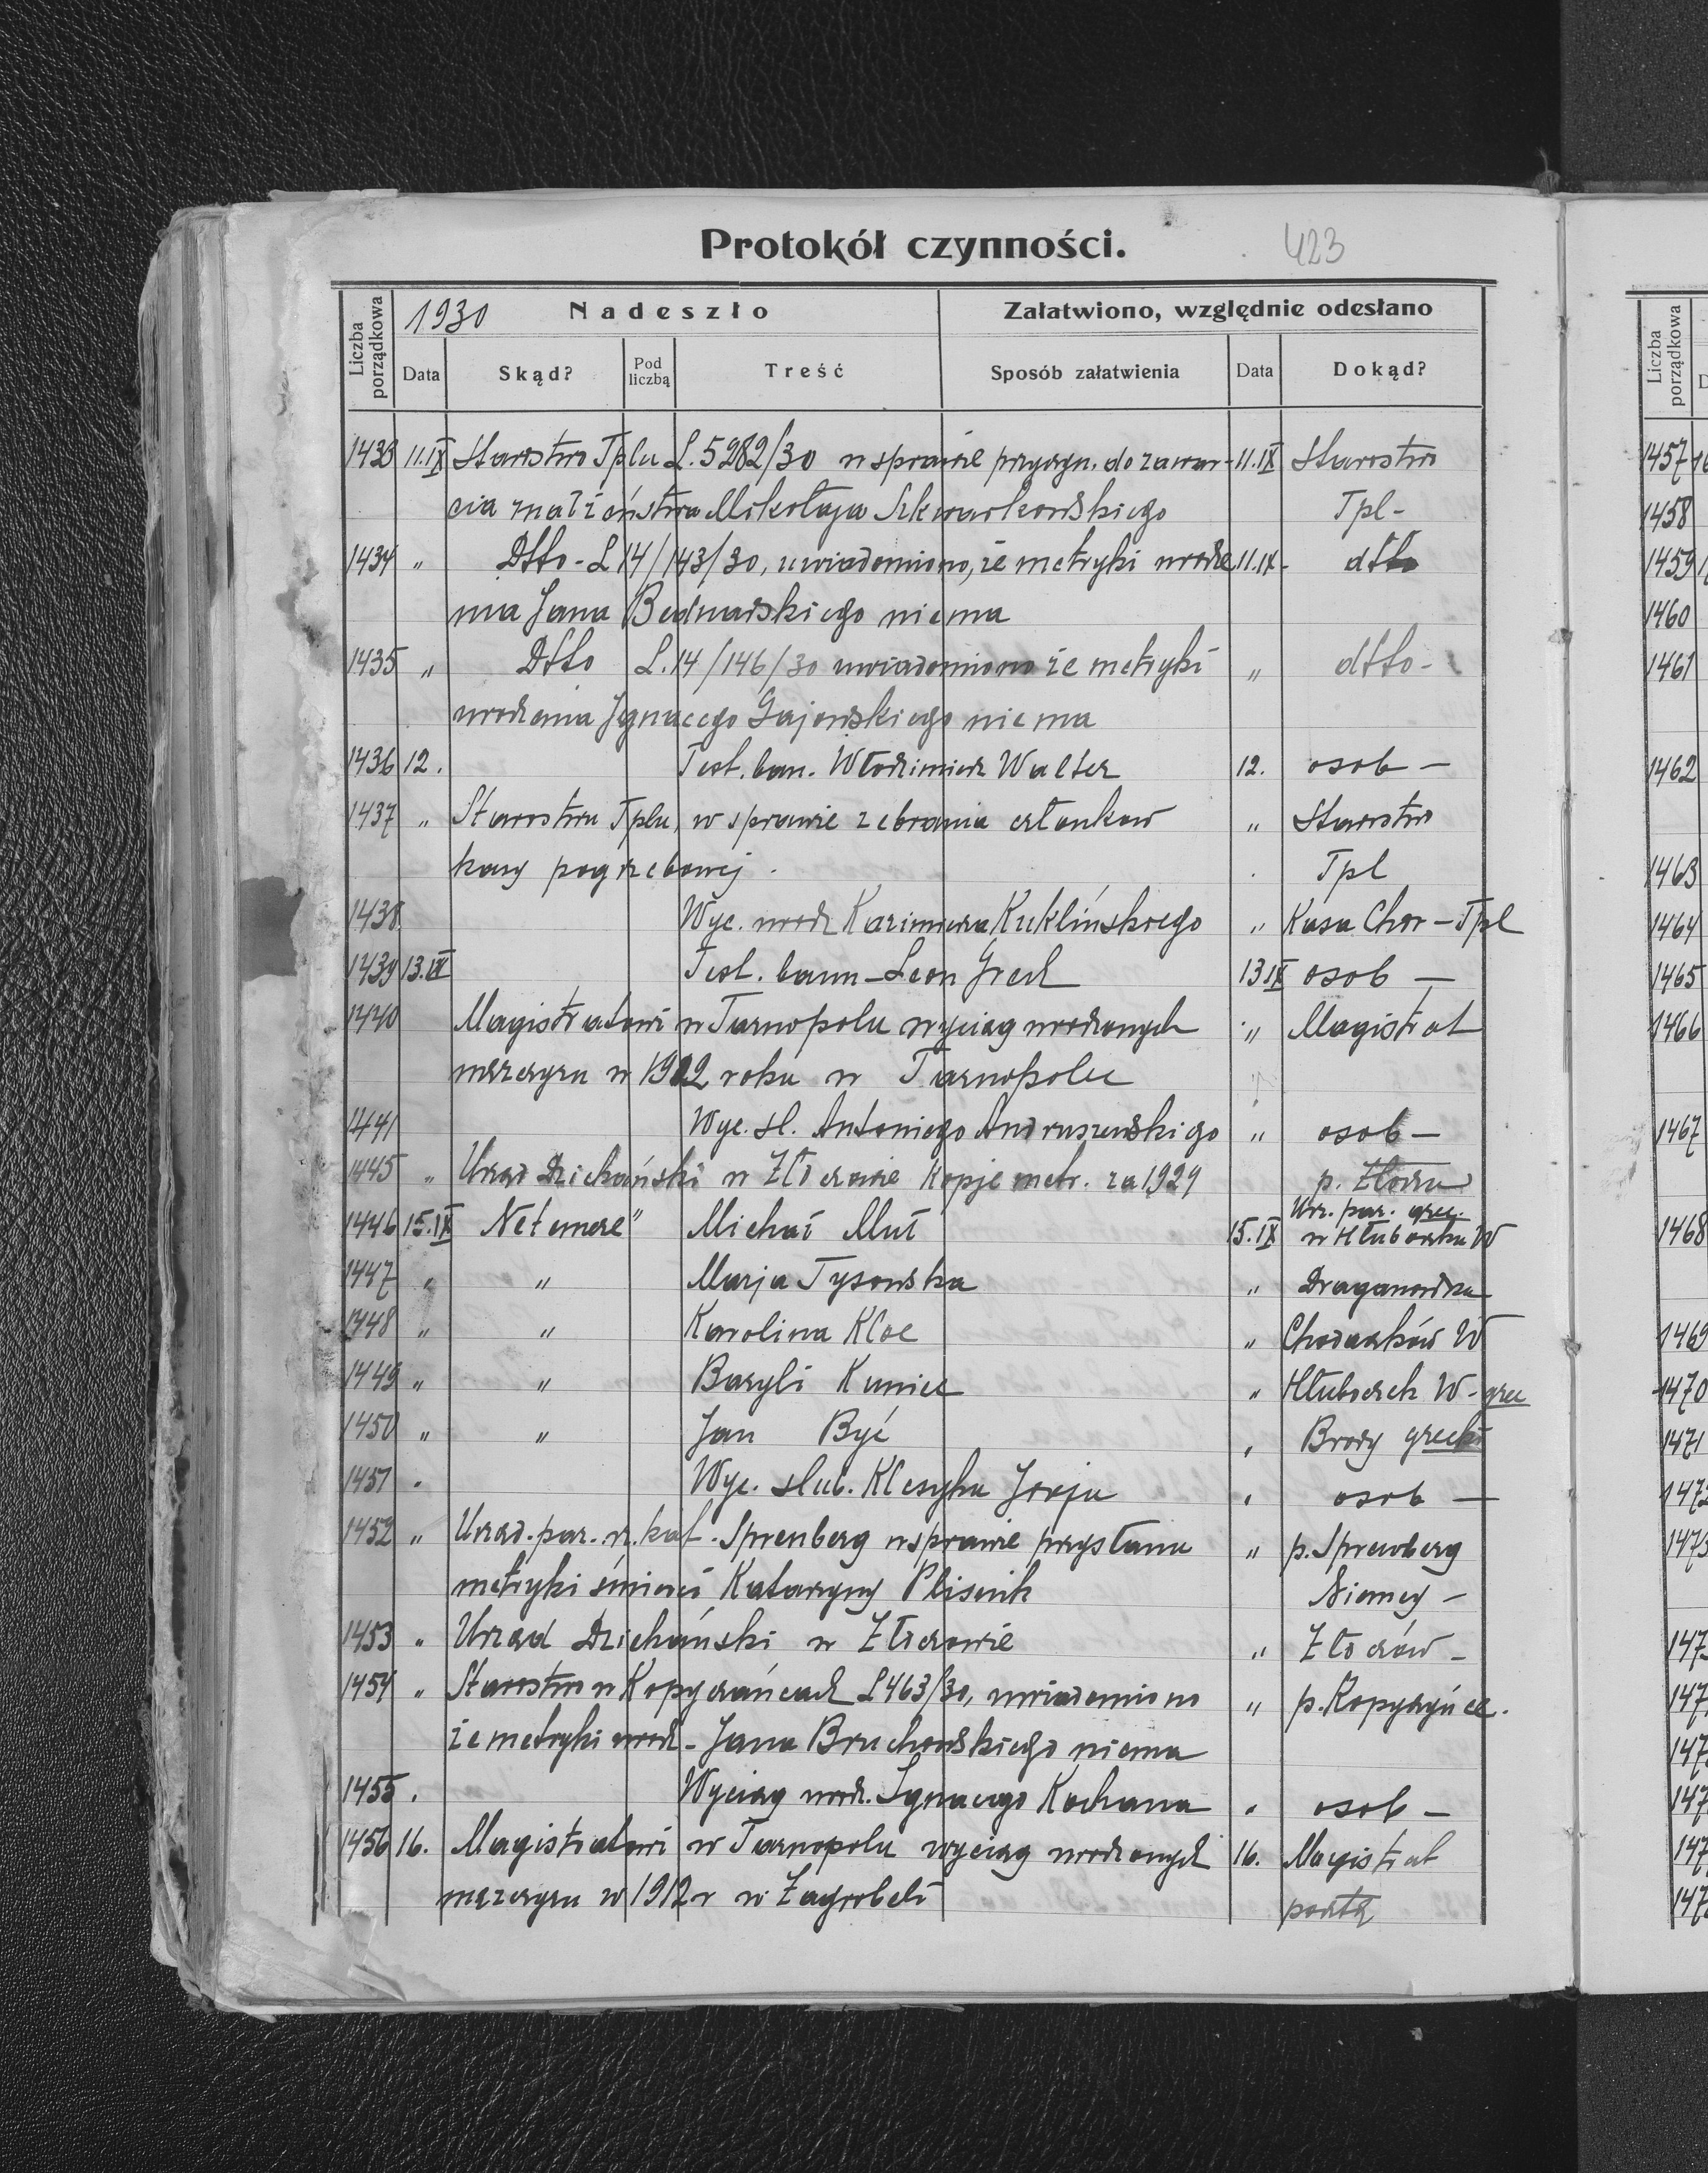 Protokół czynności.
423
Liczba porządkowa
1930 Nadeszło
Załatwiono, względnie odesłano
Data Skąd? Pod liczbą Treść Sposób załatwienia Data Dokąd?
1433 11.IX Starostwo Tplu L. 5282/30 w sprawie przyczyn. do zawar- 11.IX Starostwo
cia małżeństwa Mikołaja Szkwarkowskiego Tpl-
1434 " Dtto - L 14/143/30, uwiadomiono, że metryki urodze 11.IX- dtto
nia Jana Bednarskiego niema
1435 " Dtto L. 14/146/30 uwiadomiono że metryki " dtto-
urodzenia Ignacego Gajewskiego niema
1436 12. Test. ban. Włodzimierz Walter 12. osob-
1437 " Starostwu Tplu, w sprawie zebrania członków " Starostwo
kasy pogrzebowej . Tpl
1438. Wyc. urodz Kazimierza Kuklińskiego " Kasa Chor-Tpl
1439 13.IX Test. bann-Leon 13 IX osob-
1440 Magistratowi w Tarnopolu wyciąg urodzonych " Magistrat
mężczyzn w 1912 roku w Tarnopolu
1441 Wyc. sl. Antoniego Andruszewskigo " osob-
1445 " Urząd Dziekański w Złoczowie Kopje metr. za 1929 p. Złoczów
1446 15.IX Ne temere" Michał Muł 15.IX Urz. par. grec.
w Hłuboczku W
1447 " " Marja Tysowska " Draganówka
1448 " " Karolina Kloc " Chodaczków W
1449 " " Bazyli Kuniec " Hłuboczek W-grec
1450 " " Jan Być " Brody grecki
1451 . Wyc. slub. Klesyka Jorja " osob-
1452 " Urząd. par. rz. kat. Spremberg w sprawie przysłania " p. Spremberg
metryki śmierci Katarzyny Plisenik Niemcy-
1453 " Urząd Dziekański w Złoczowie " Złoczów-
1454 " Starostwo w Kopyczyńcach L 463/30, uwiadomiono " p. Kopyczyńce.
że metryki urodz- Jana Bruchowskiego niema
1455 . Wyciąg urodz. Ignacego Kochana " osob-
1456 16. Magistratowi w Tarnopolu wyciąg urodzonych 16. Magistrat
mężczyzn w 1912 r w Zagrobeli pocztą
Liczba porządkowa
1457
1458
1459
1460
1461
1462
1463
1464
1465
1466
1467
1468
1469
1470
1471